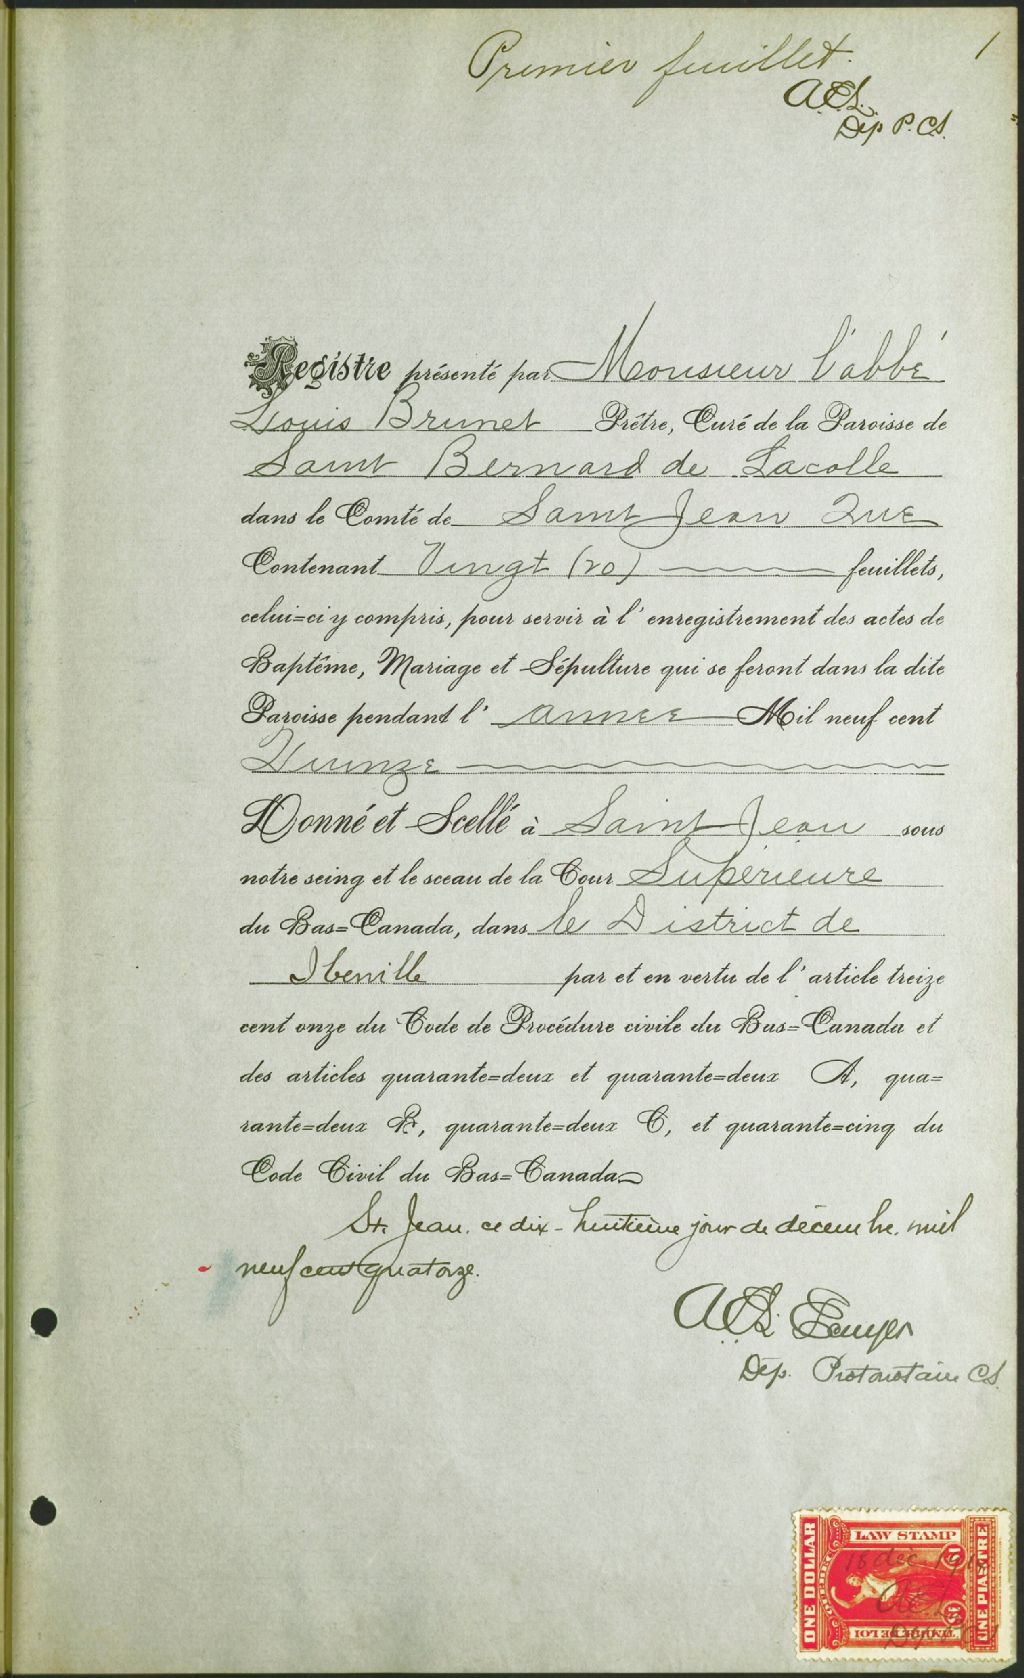 Premier feuillet.
1
A.E.L.
Dép P.C.S.
Registre présenté par Monsieur l'abbé
Louis Brunet Prêtre, Curé de la Paroisse de
Saint Bernard de Lacolle
dans le Comté de Saint Jean Que
Contenant Vingt (20) feuillets,
celui=ci y compris, pour servir à l'enregistrement des actes de
Baptême, Mariage et Sépulture qui se feront dans la dite
Paroisse pendant l' année Mil neuf cent
Quinze
Donné et Scellé à Saint Jean sous
notre seing et le sceau de la Cour Supérieure
du Bas=Canada, dans le District de
Iberville par et en vertu de l'article treize
cent onze du Code de Procédure civile du Bas=Canada et
des articles quarante=deux et quarante=deux A, qua=
rante=deux B, quarante=deux C, et quarante=cinq du
Code Civil du Bas=Canada
St. Jean. ce dix-huitième jour de décembre. mil
neuf cent quatorze.
Dép. Protonotaire C.S.
ONE DOLLAR
LAW STAMP
$1
UNE PIASTRE
TIMBRE DE LOI
18 déc. 191